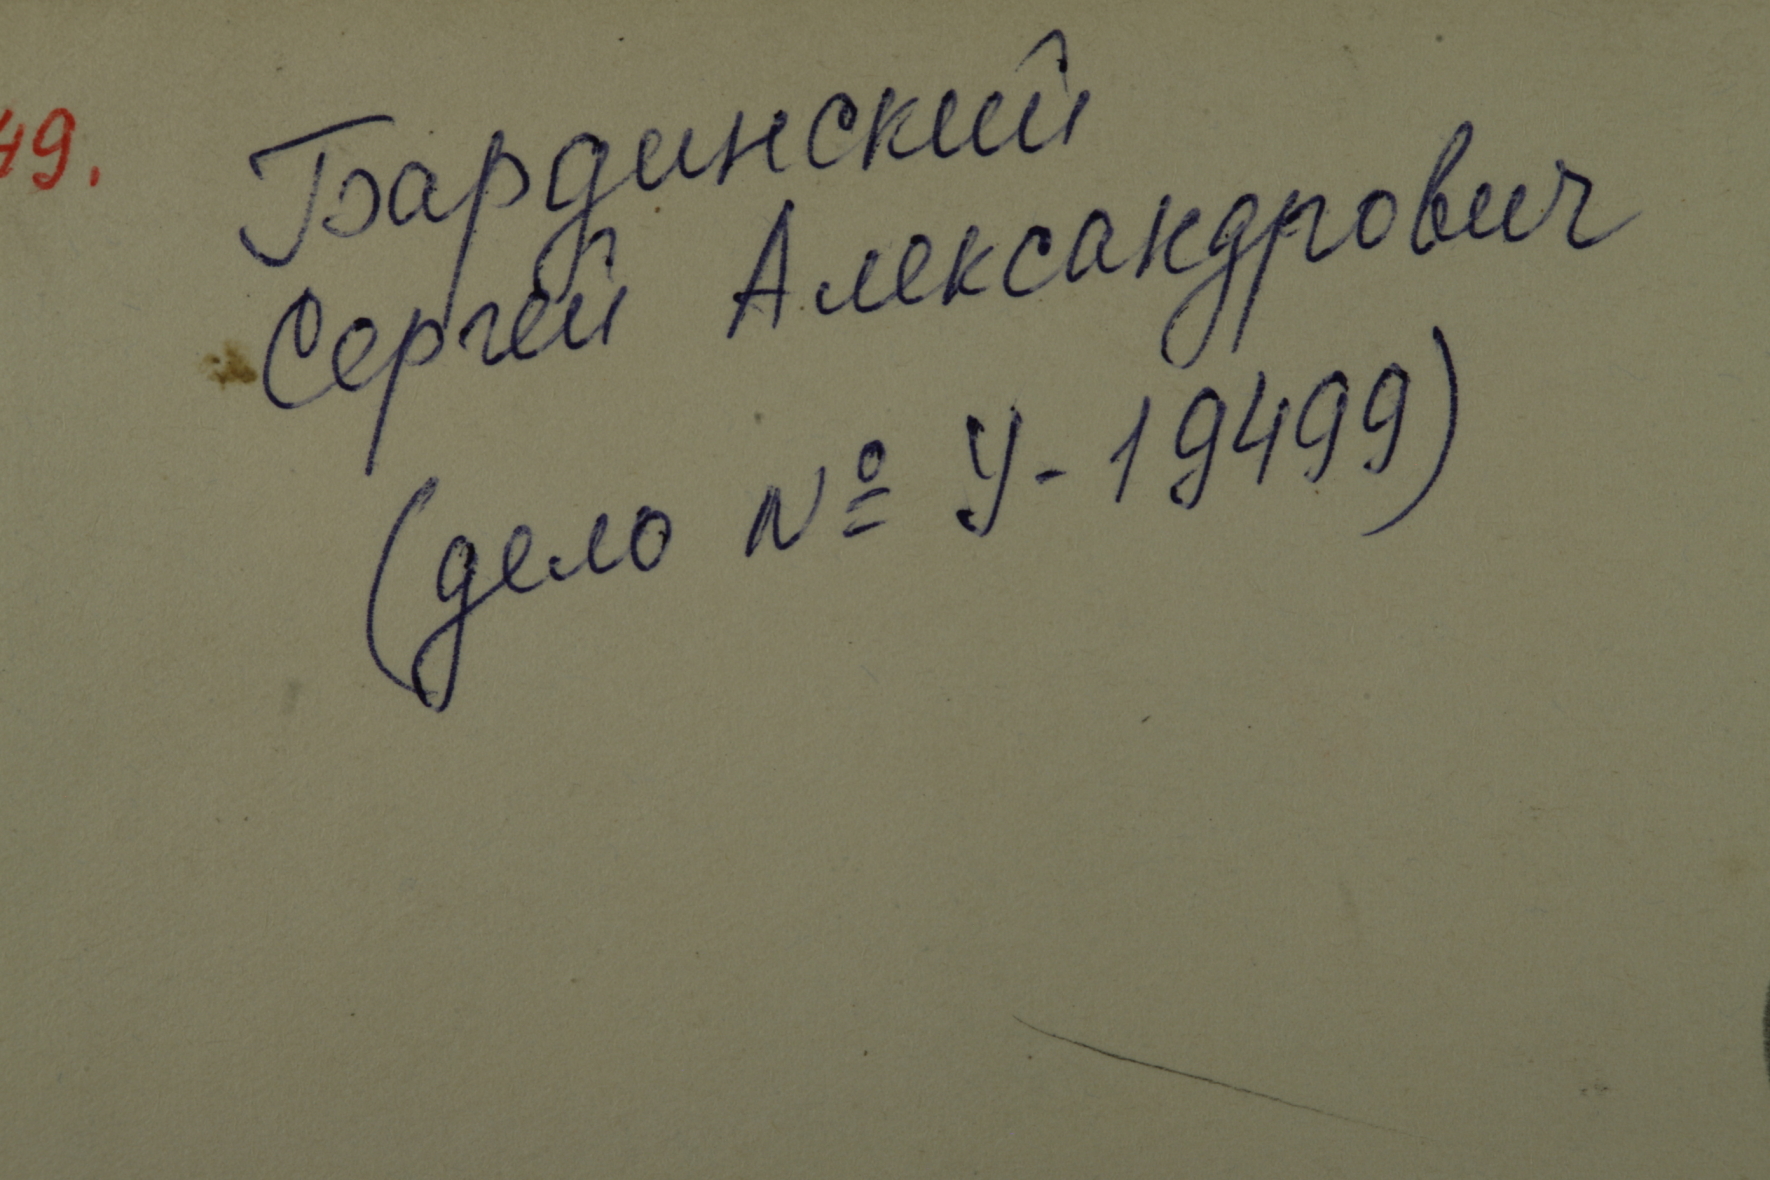 49. Бардинский
Сергей Александрович
(дело № У-19499)